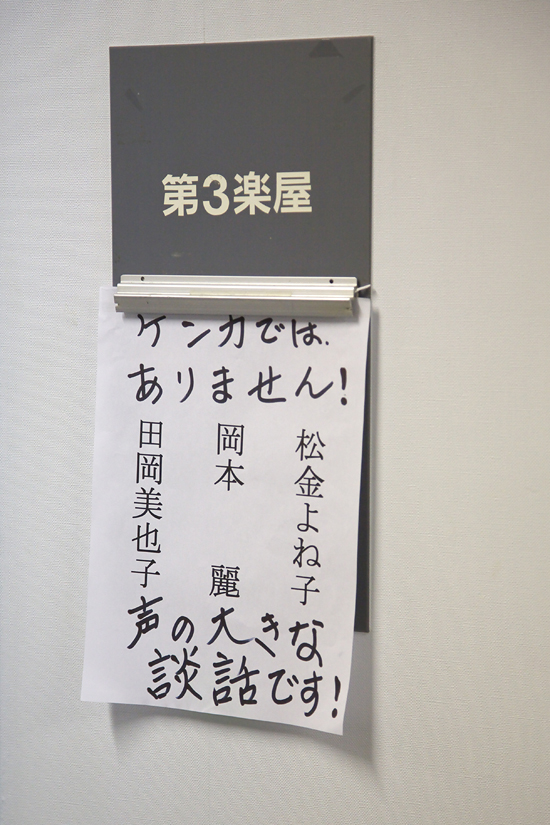 第3楽屋
ケンカでは、
ありません!
松金よね子
岡本 麗
田岡美也子
声の大きな
談話です!